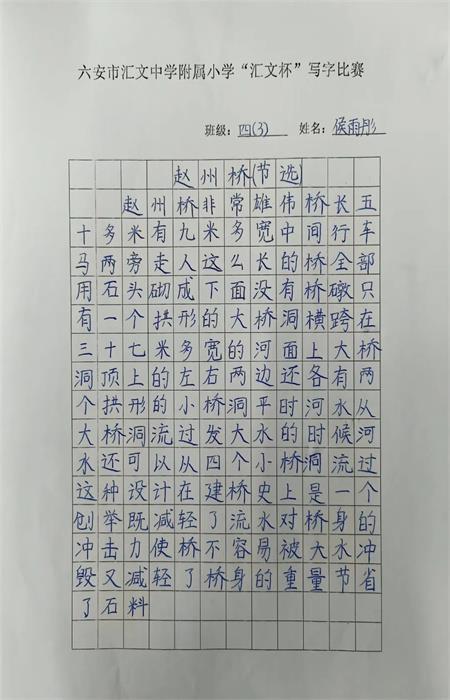 六安市汇文中学附属小学“汇文杯”写字比赛
班级：四(3) 姓名：侯雨彤
赵州桥(节选)
赵州桥非常雄伟桥长五
十多米有九米多宽中间行车
马两旁走人这么长的桥全部
用石头砌成下面没有桥礅只
有一个拱形的大桥洞横跨在
三十七米多宽的河面上大桥
洞顶上的左右两边还各有两
个拱形的小桥洞平时河水从
大桥洞流过发大水的时候河
水还可以从四个小桥洞流过
这种设计在建桥史上是一个
创举既减轻了流水对桥身的
冲击力使桥不容易被大水冲
毁又减轻了桥身的重量节省
了石料